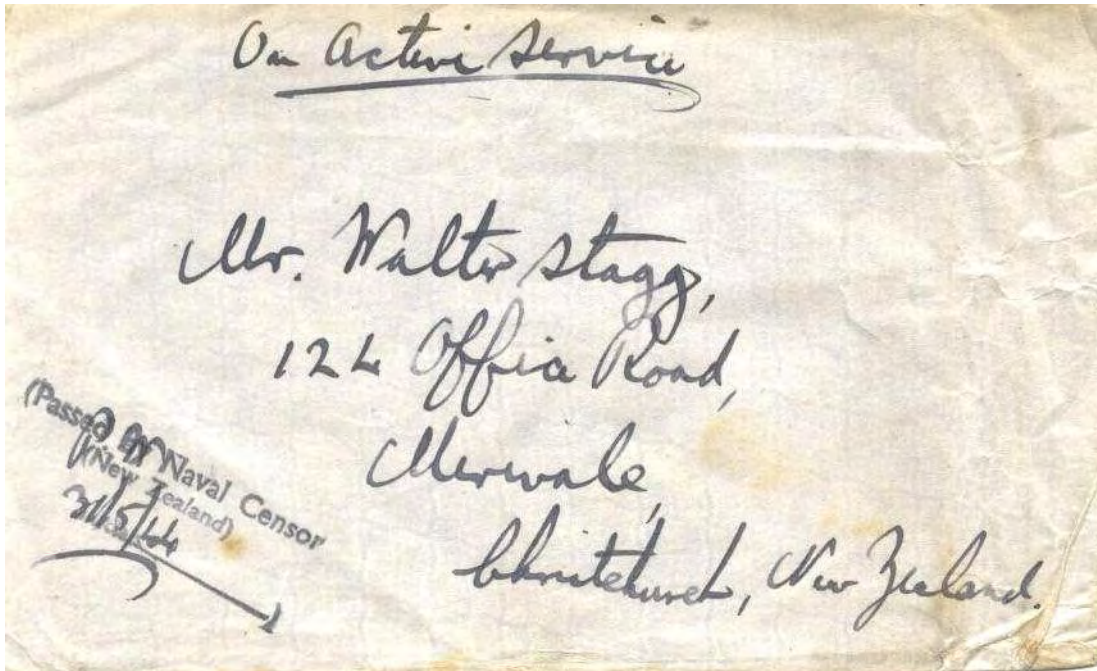 On Active Service
Mr. Walter Stagg,
124 Office Road,
Merivale,
Christchurch, New Zealand.
(Passed by Naval Censor
(New Zealand)
31/5/44